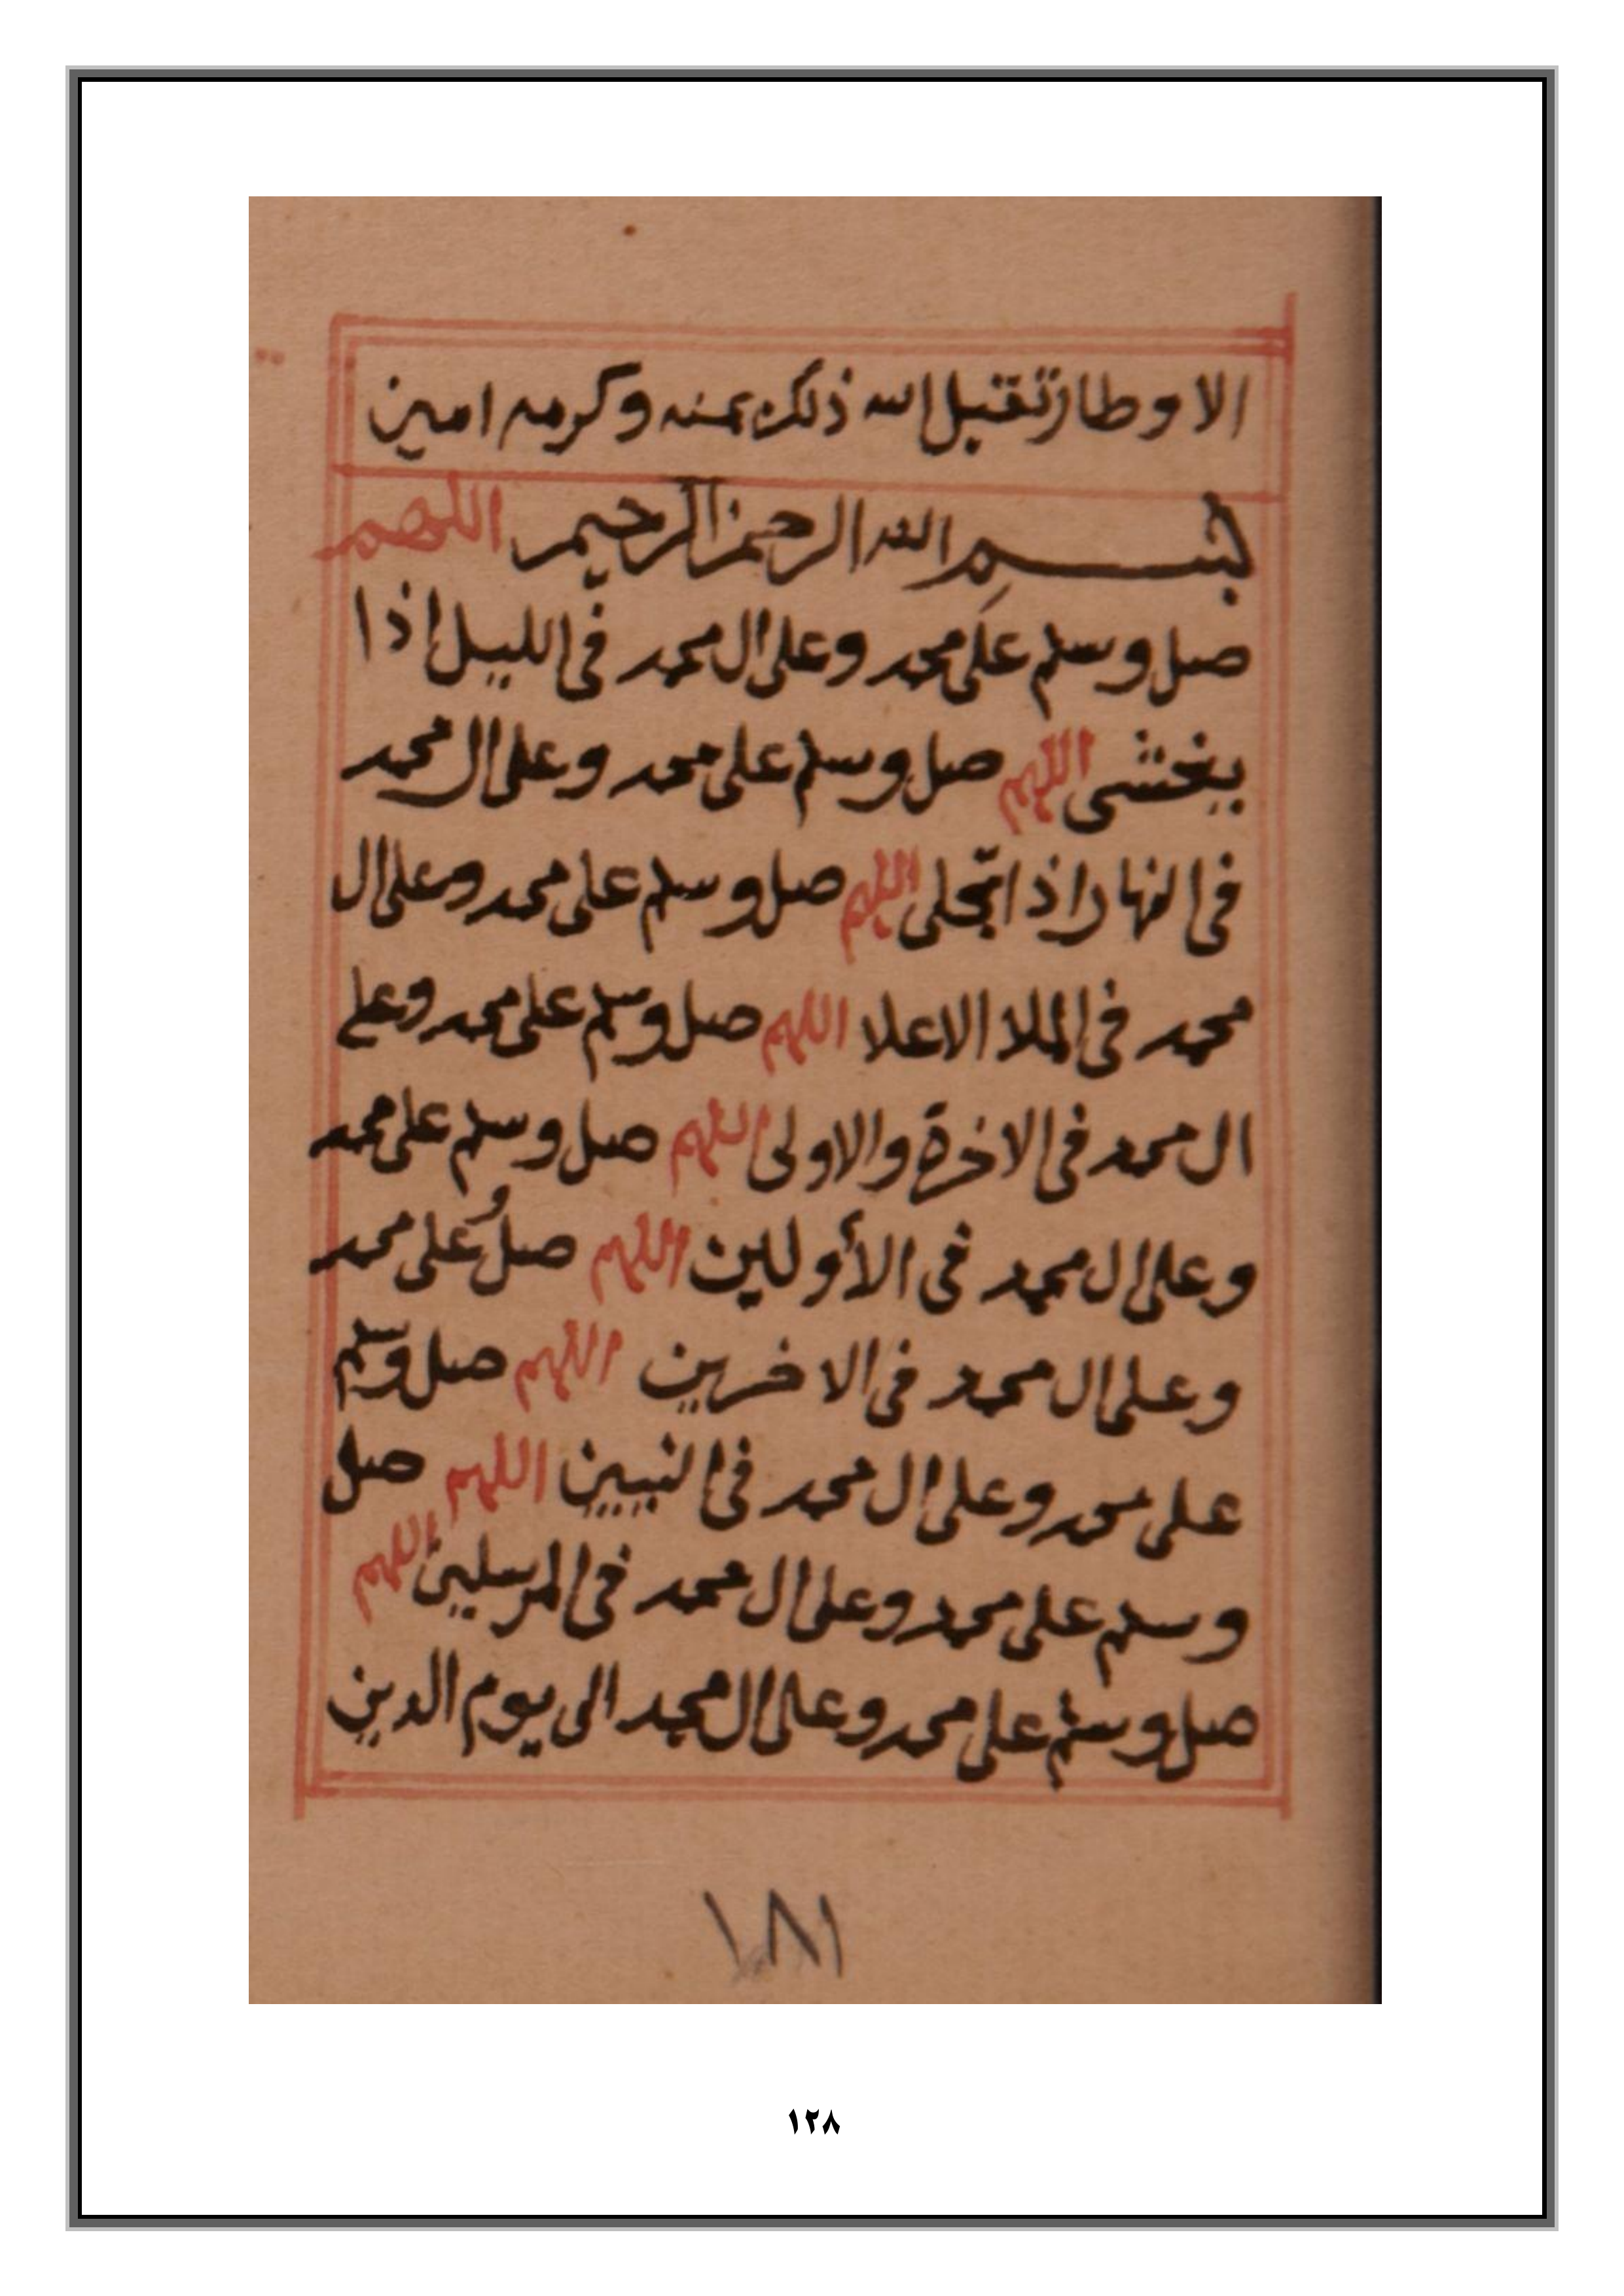 الاوطار تقبل الله ذلك بمنه وكرمه امين
بسم الله الرحمن الرحيم اللهم
صل وسلم على محمد وعلى ال محمد فى الليل اذا
يغشى اللهم صل وسلم على محمد وعلى ال محمد
فى النهار اذا تجلى اللهم صل وسلم على محمد وعلى ال
محمد فى الملا الاعلا اللهم صل وسلم على محمد وعلى
ال محمد فى الاخرة والاولى اللهم صل وسلم على محمد
وعلى ال محمد فى الأولين اللهم صل على محمد
وعلى ال محمد فى الاخرين اللهم صل وسلم
على محمد وعلى ال محمد فى النبيين اللهم صل
وسلم على محمد وعلى ال محمد فى المرسلين اللهم
صل وسلم على محمد وعلى ال محمد الى يوم الدين
١٨١
١٢٨